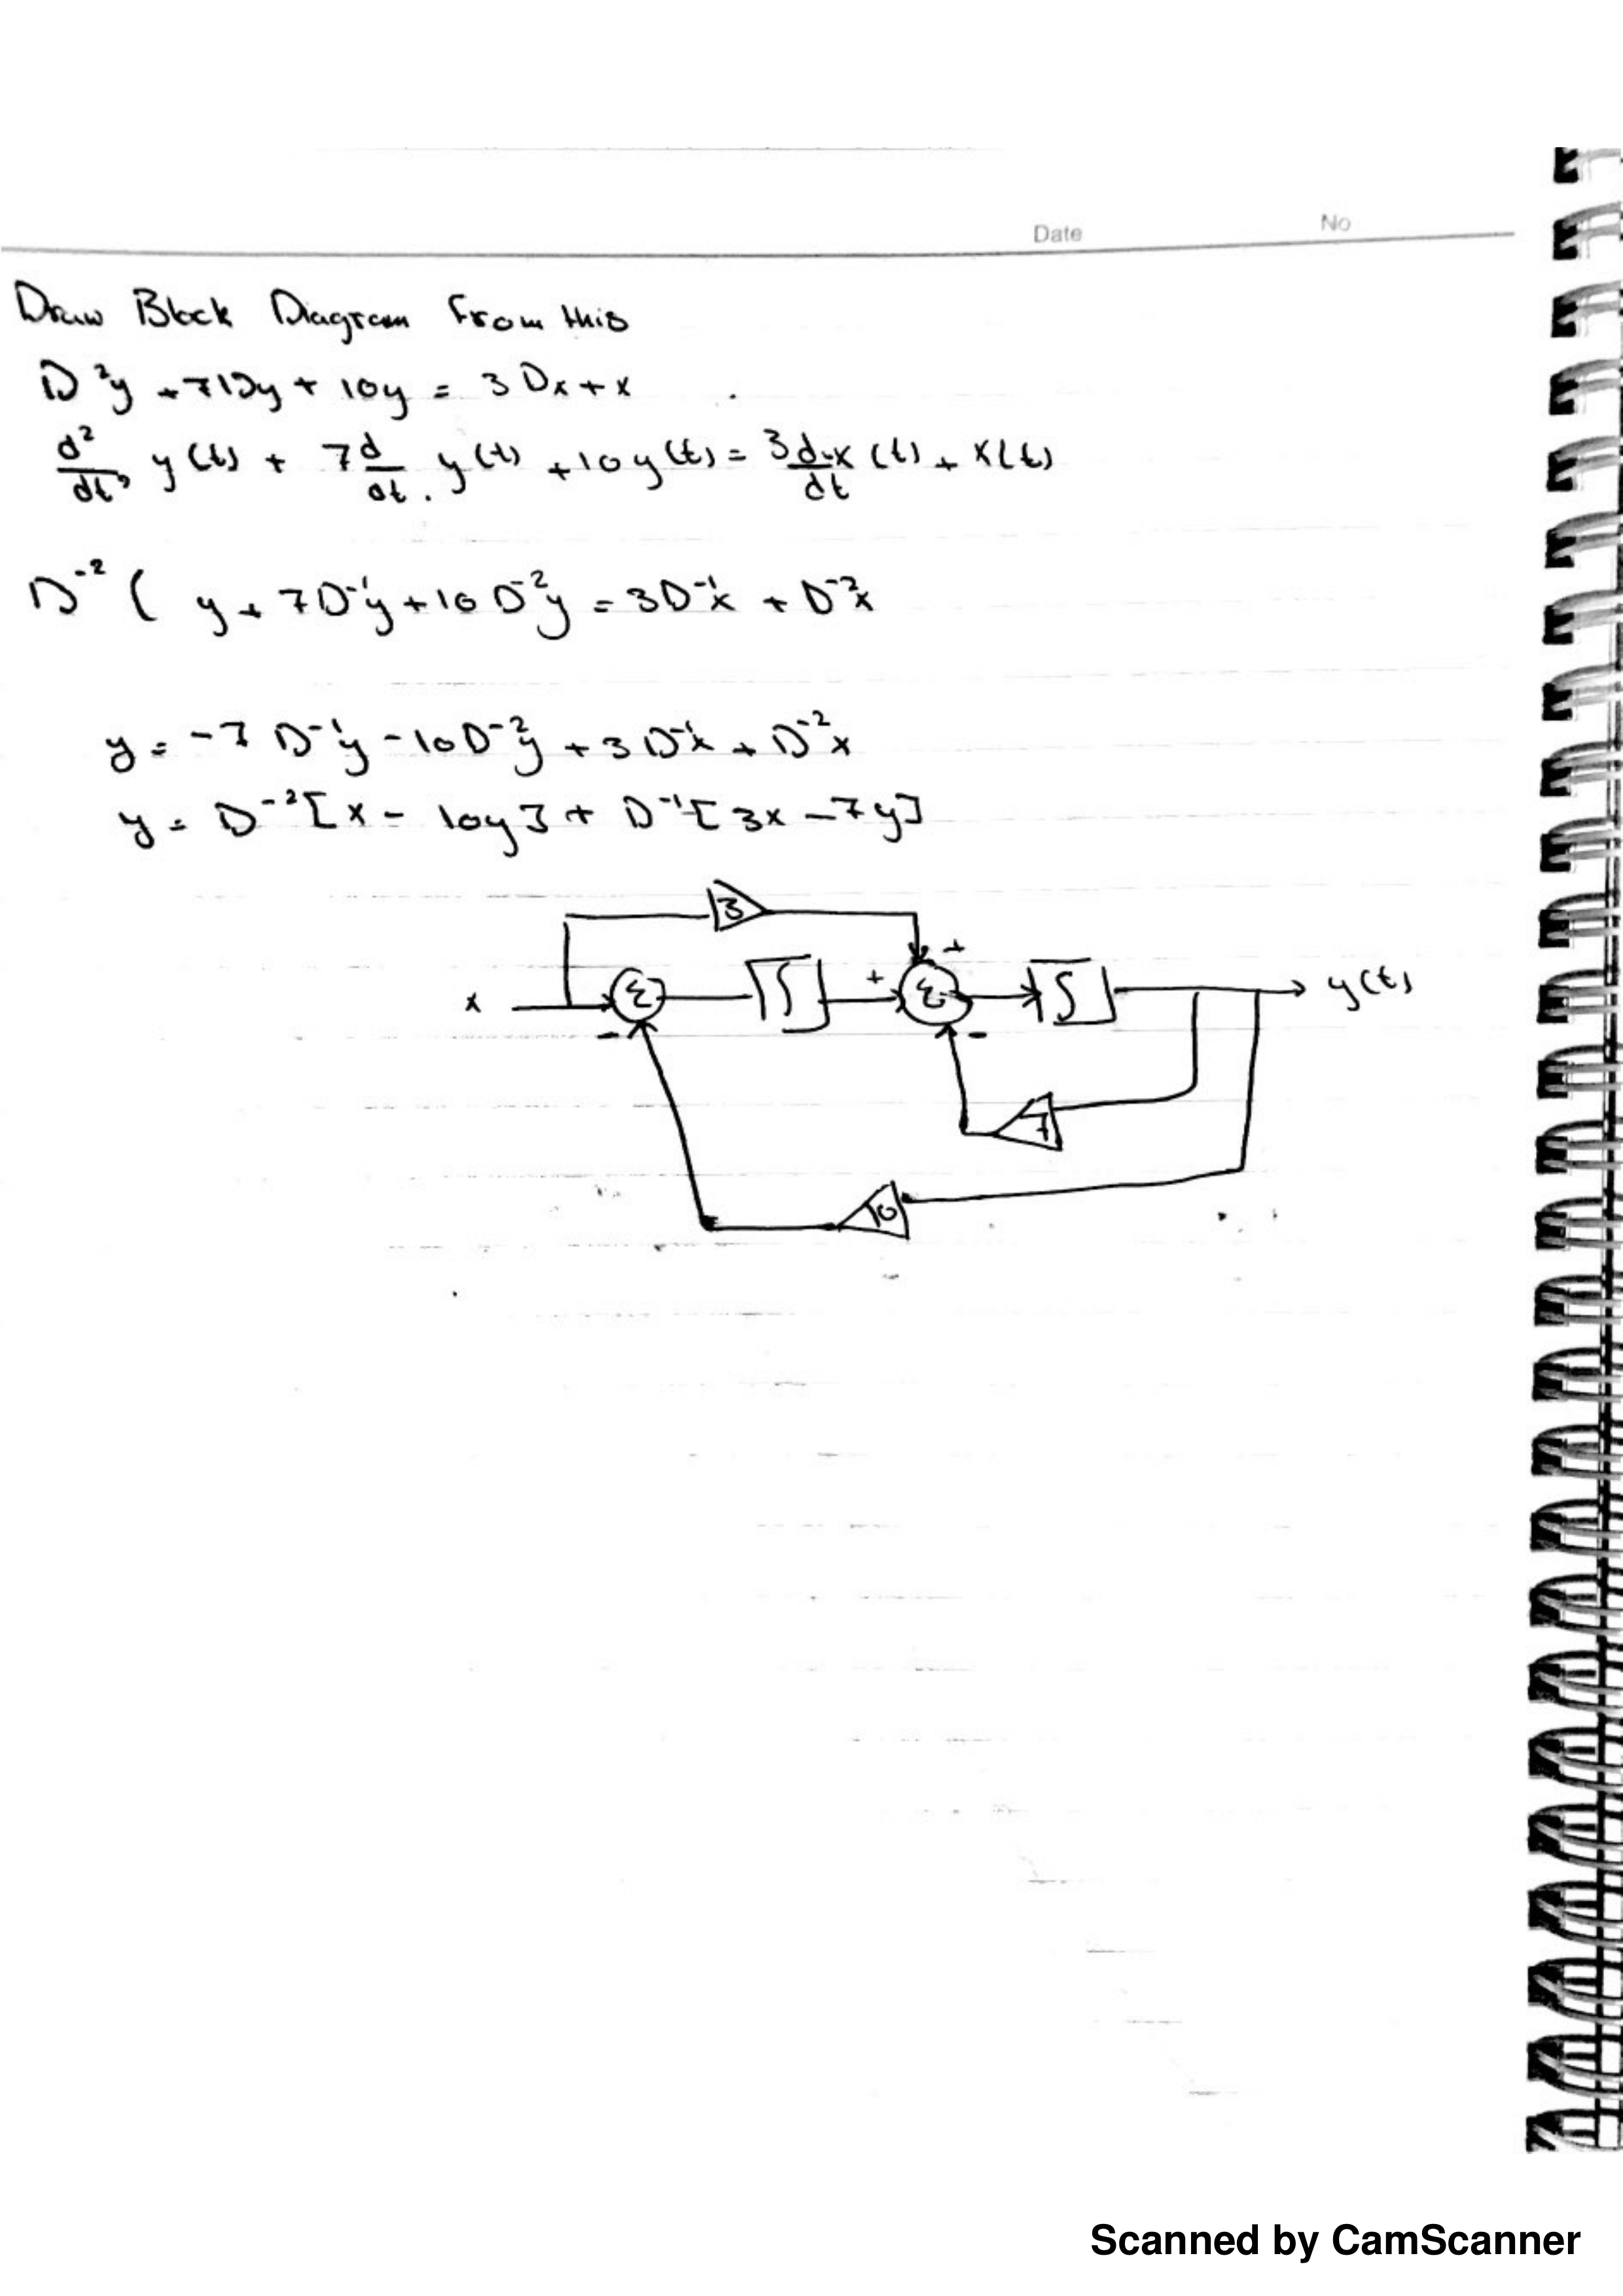 Date No
Draw Block Diagram From this
D²y + 7Dy + 10y = 3Dx + x
d²/dt² y(t) + 7d/dt . y(t) + 10y(t) = 3d/dt x(t) + x(t)
D⁻² ( y + 7D⁻¹y + 10D⁻²y = 3D⁻¹x + D⁻²x
y = -7D⁻¹y - 10D⁻²y + 3D⁻¹x + D⁻²x
y = D⁻²[x - 10y] + D⁻¹[3x - 7y]
3
+
x Σ ∫ + Σ ∫ y(t)
- -
7
10
Scanned by CamScanner